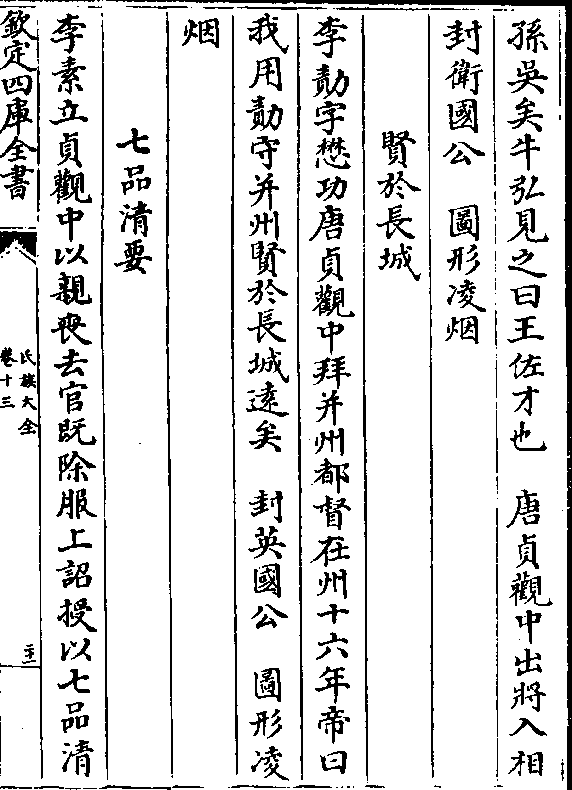 孫吳矣牛弘見之曰王佐才也　唐貞觀中出將入相
封衛國公　圖形凌烟
賢於長城
李勣字懋功唐貞觀中拜并州都督在州十六年帝曰
我用勣守并州賢於長城遠矣　封英國公　圖形凌
烟
七品清要
李素立貞觀中以親喪去官既除服上詔授以七品清
欽定四庫全書
氏族大全
卷十三